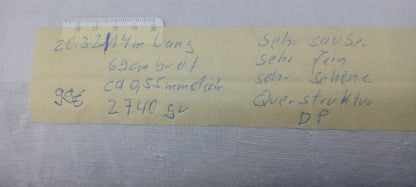 20.32 14m Lang
69cm breit
ca 0,55mm stark
99€ 2740 gr
Sehr sauber
sehr fein
sehr schöne
Querstruktur
DP